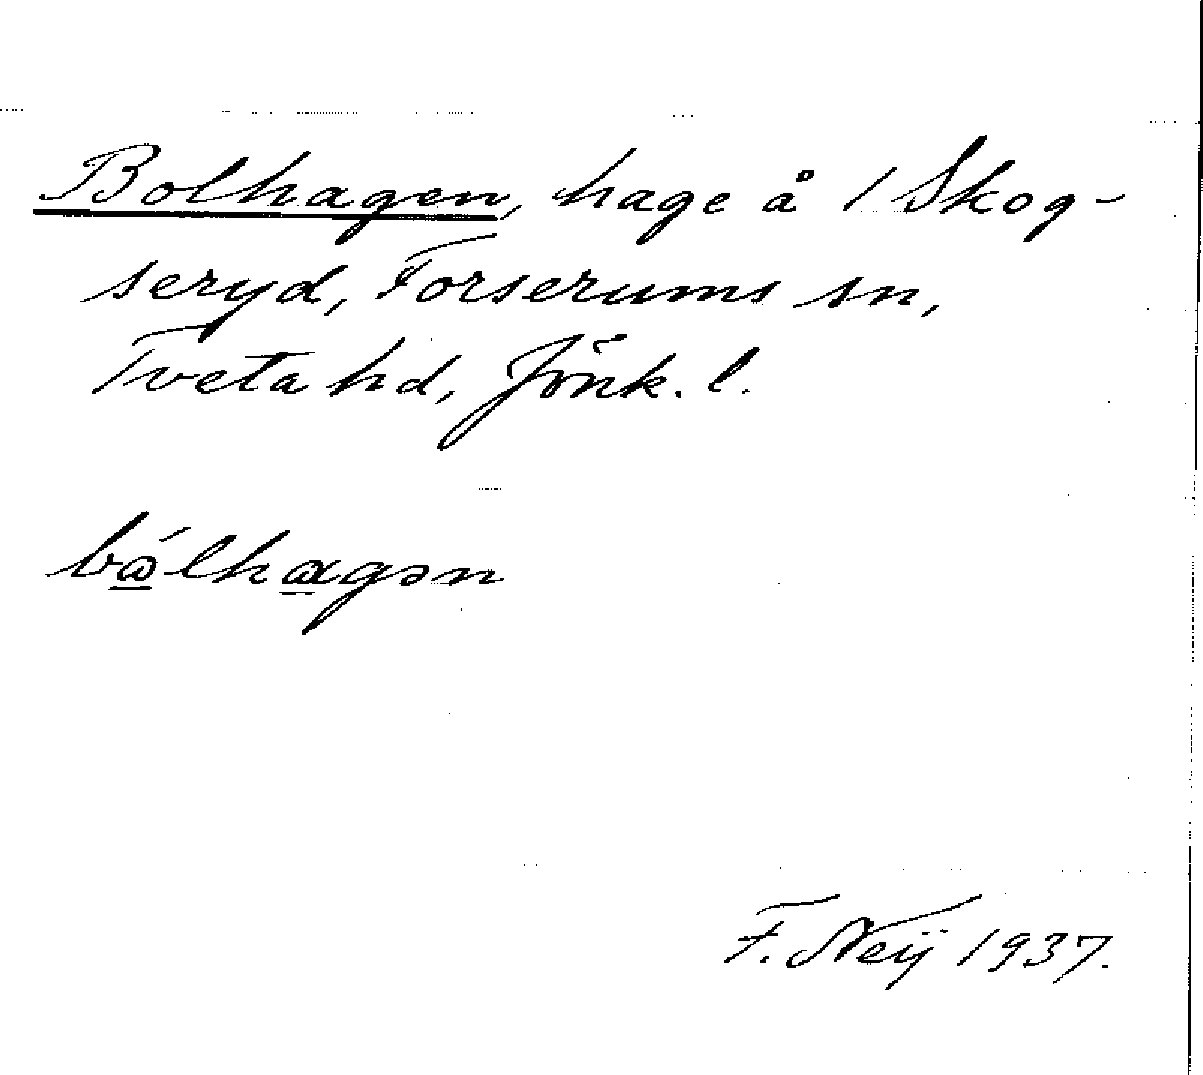 Bolhagen, hage å 1 Skog-
seryd, Forserums sn,
Tveta hd, Jönk. l.
bálhagən
F. Neij 1937.